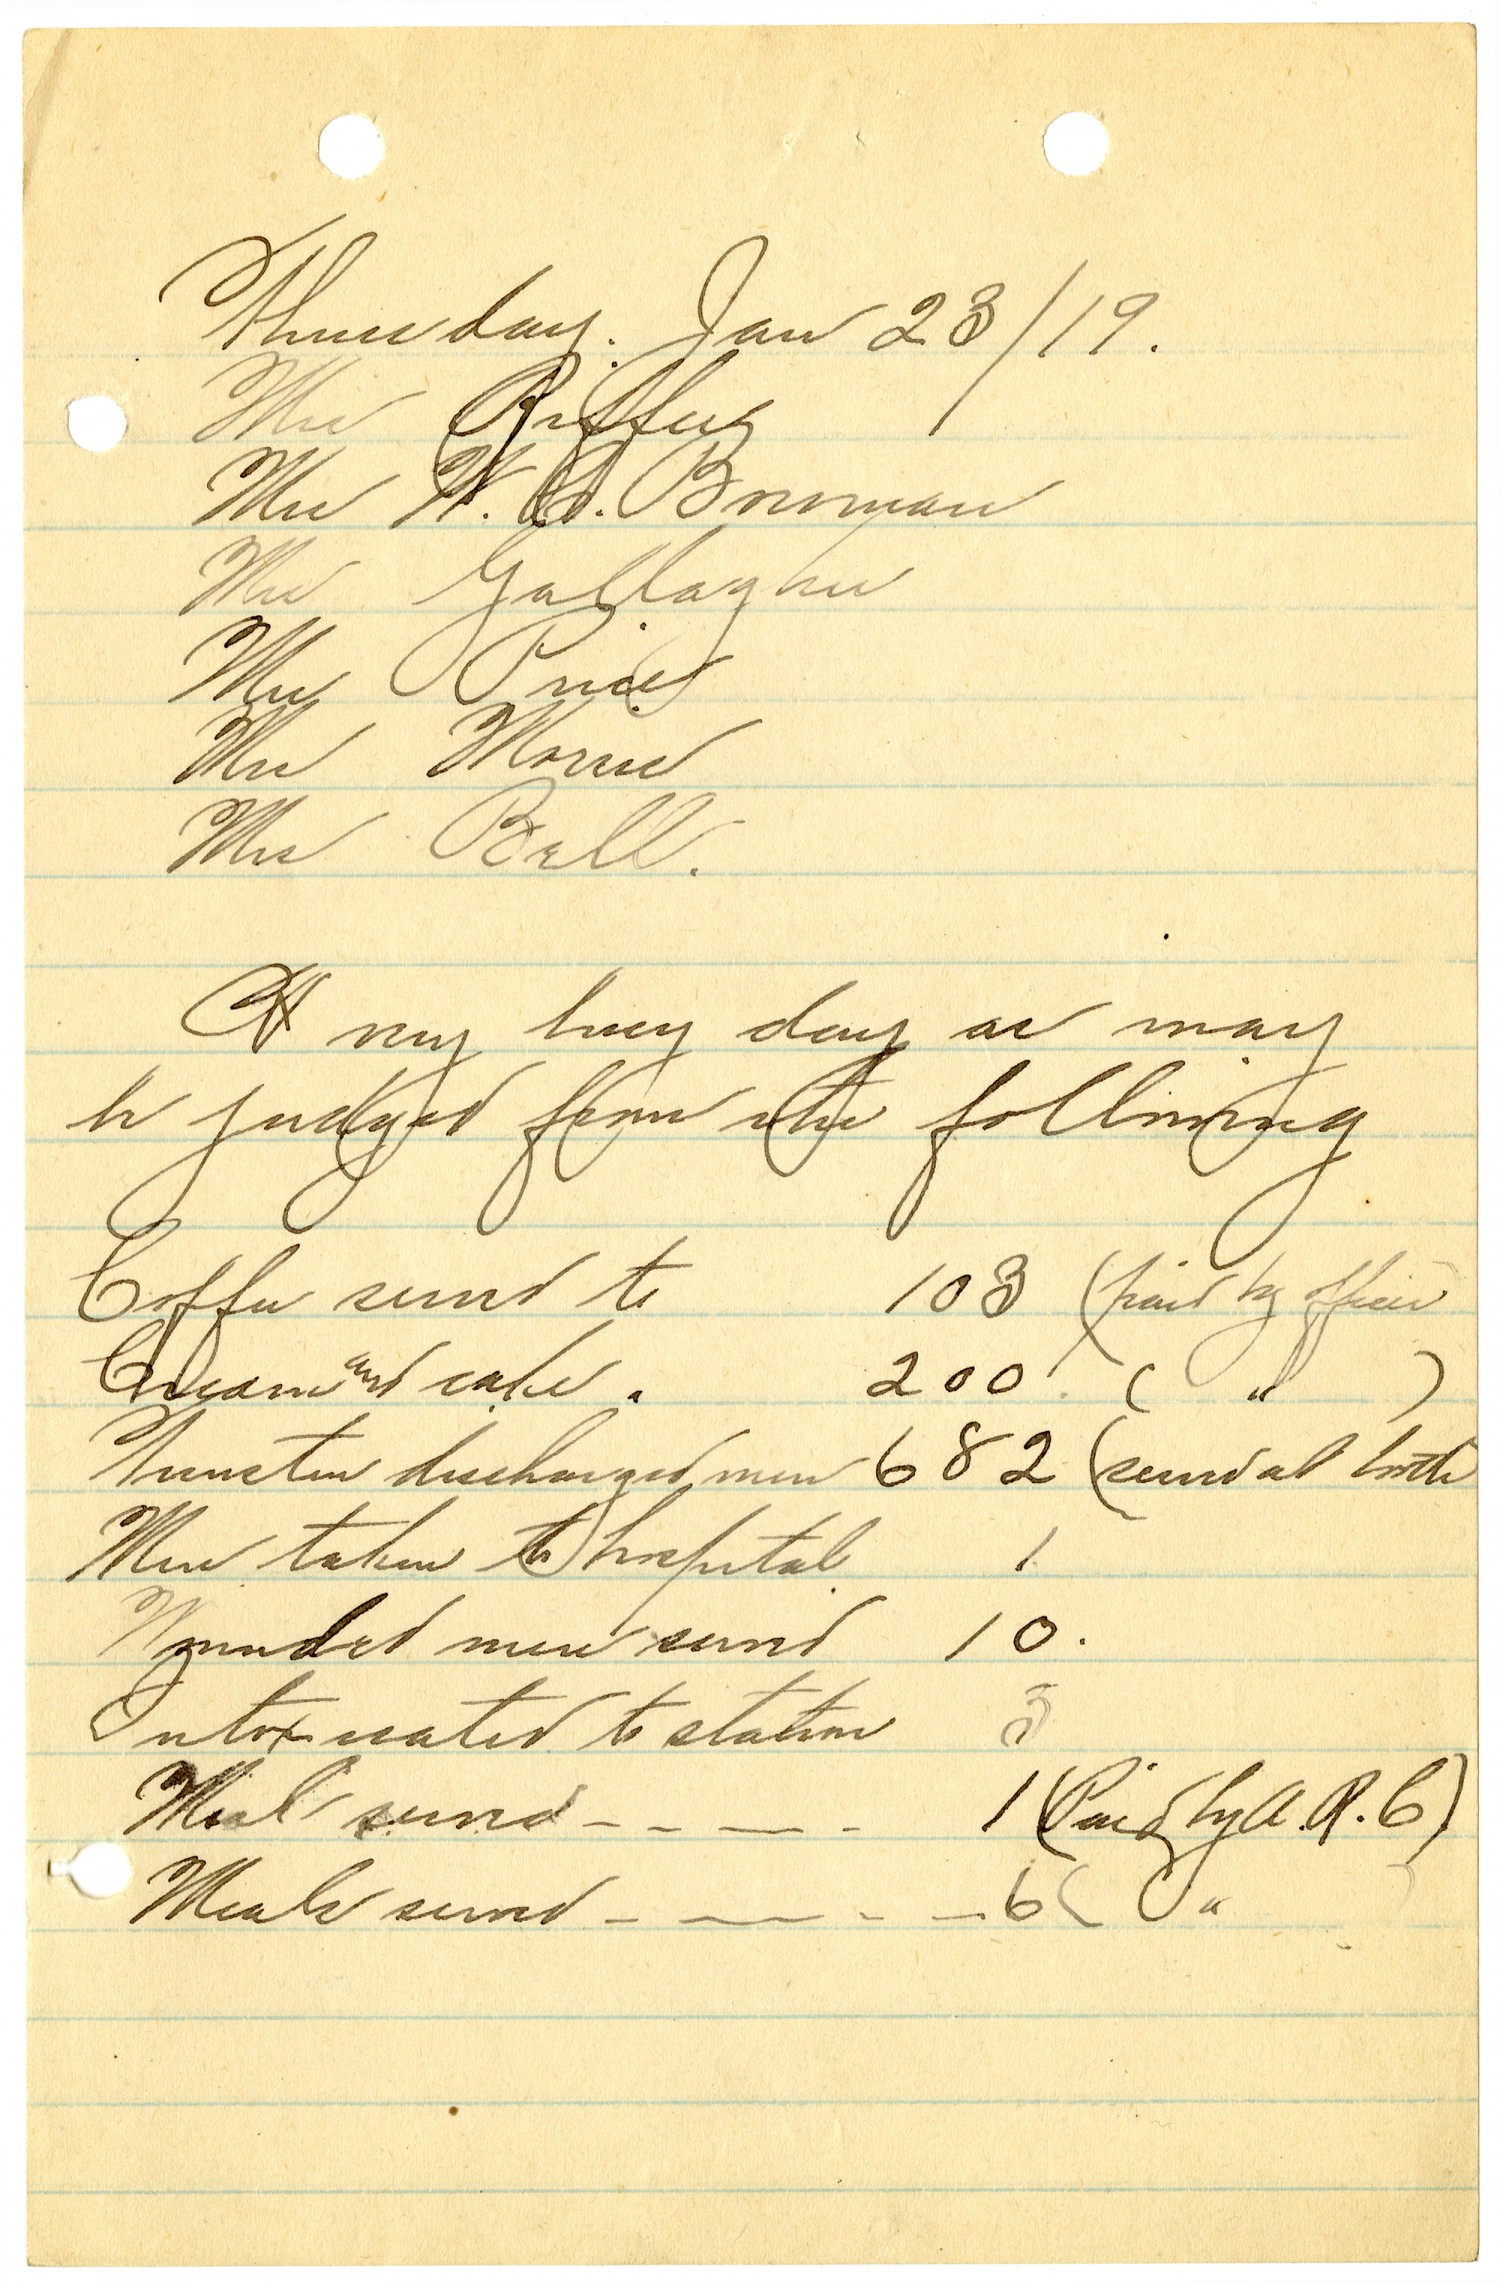 Thursday. Jan 23/19.
Mrs Riffey
Mrs W. B. Bowman
Mrs Gallagher
Mrs Price
Mrs Morris
Mrs Bell.
A very busy day as may
be judged from the following
Coffee served to 103 (paid by officer
Cream and cake. 200. ( " )
Funston discharged men 682 (served at booth
Men taken to hospital 1
Wounded men served 10.
Intoxicated to station 3
Meal served - - — - 1 (Paid by A. R. C)
Meals served - — - - 6 ( " )